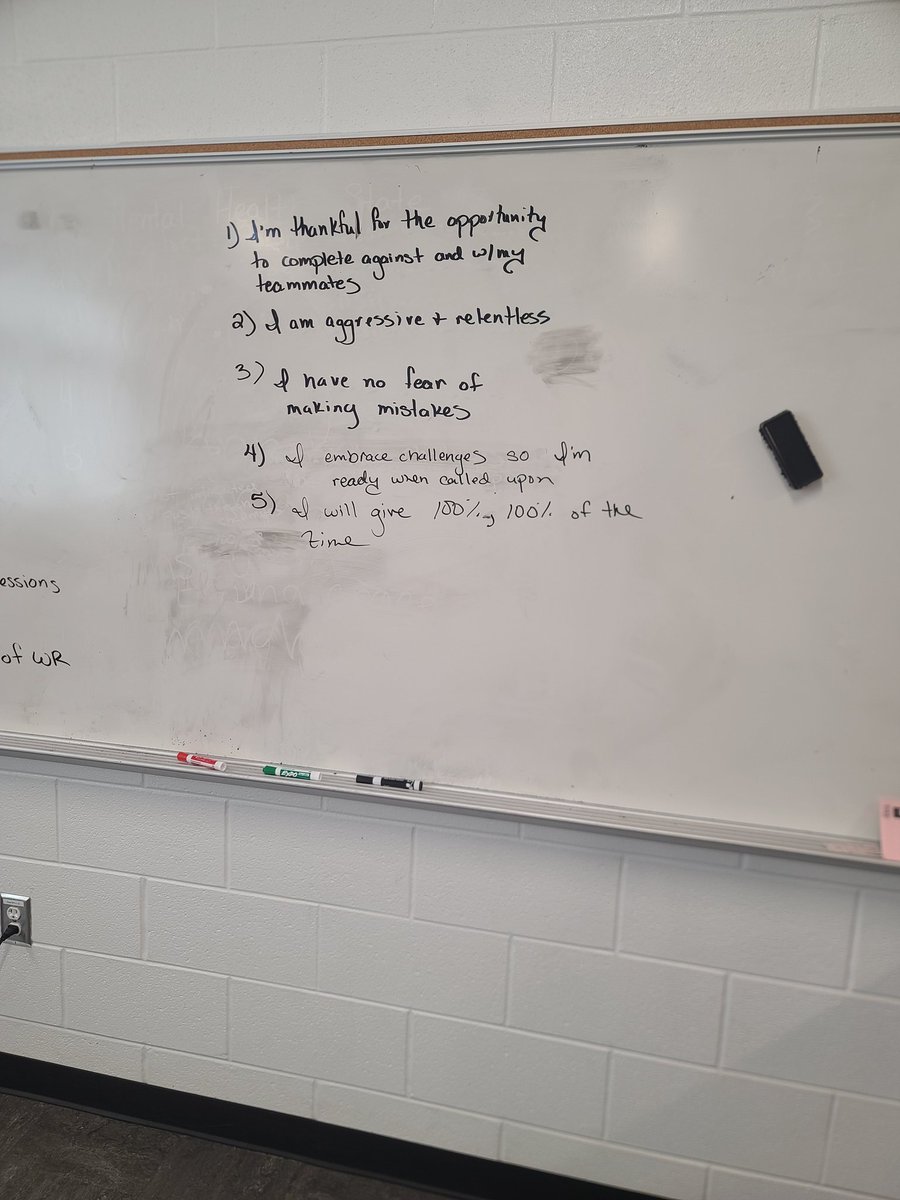 1) I'm thankful for the opportunity
to complete against and w/my
teammates
2) I am aggressive + relentless
3) I have no fear of
making mistakes
4) I embrace challenges so I'm
ready when called upon
5) I will give 100%, 100% of the
time
essions
of WR